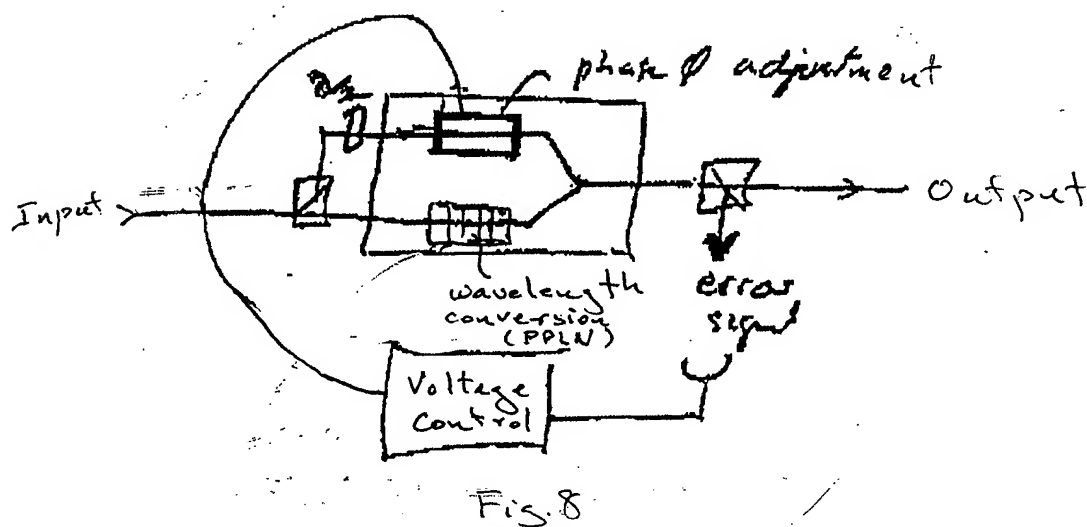 phase φ adjustment
Input
Output
wavelength
conversion
(PPLN)
error
signal
Voltage
Control
Fig. 8